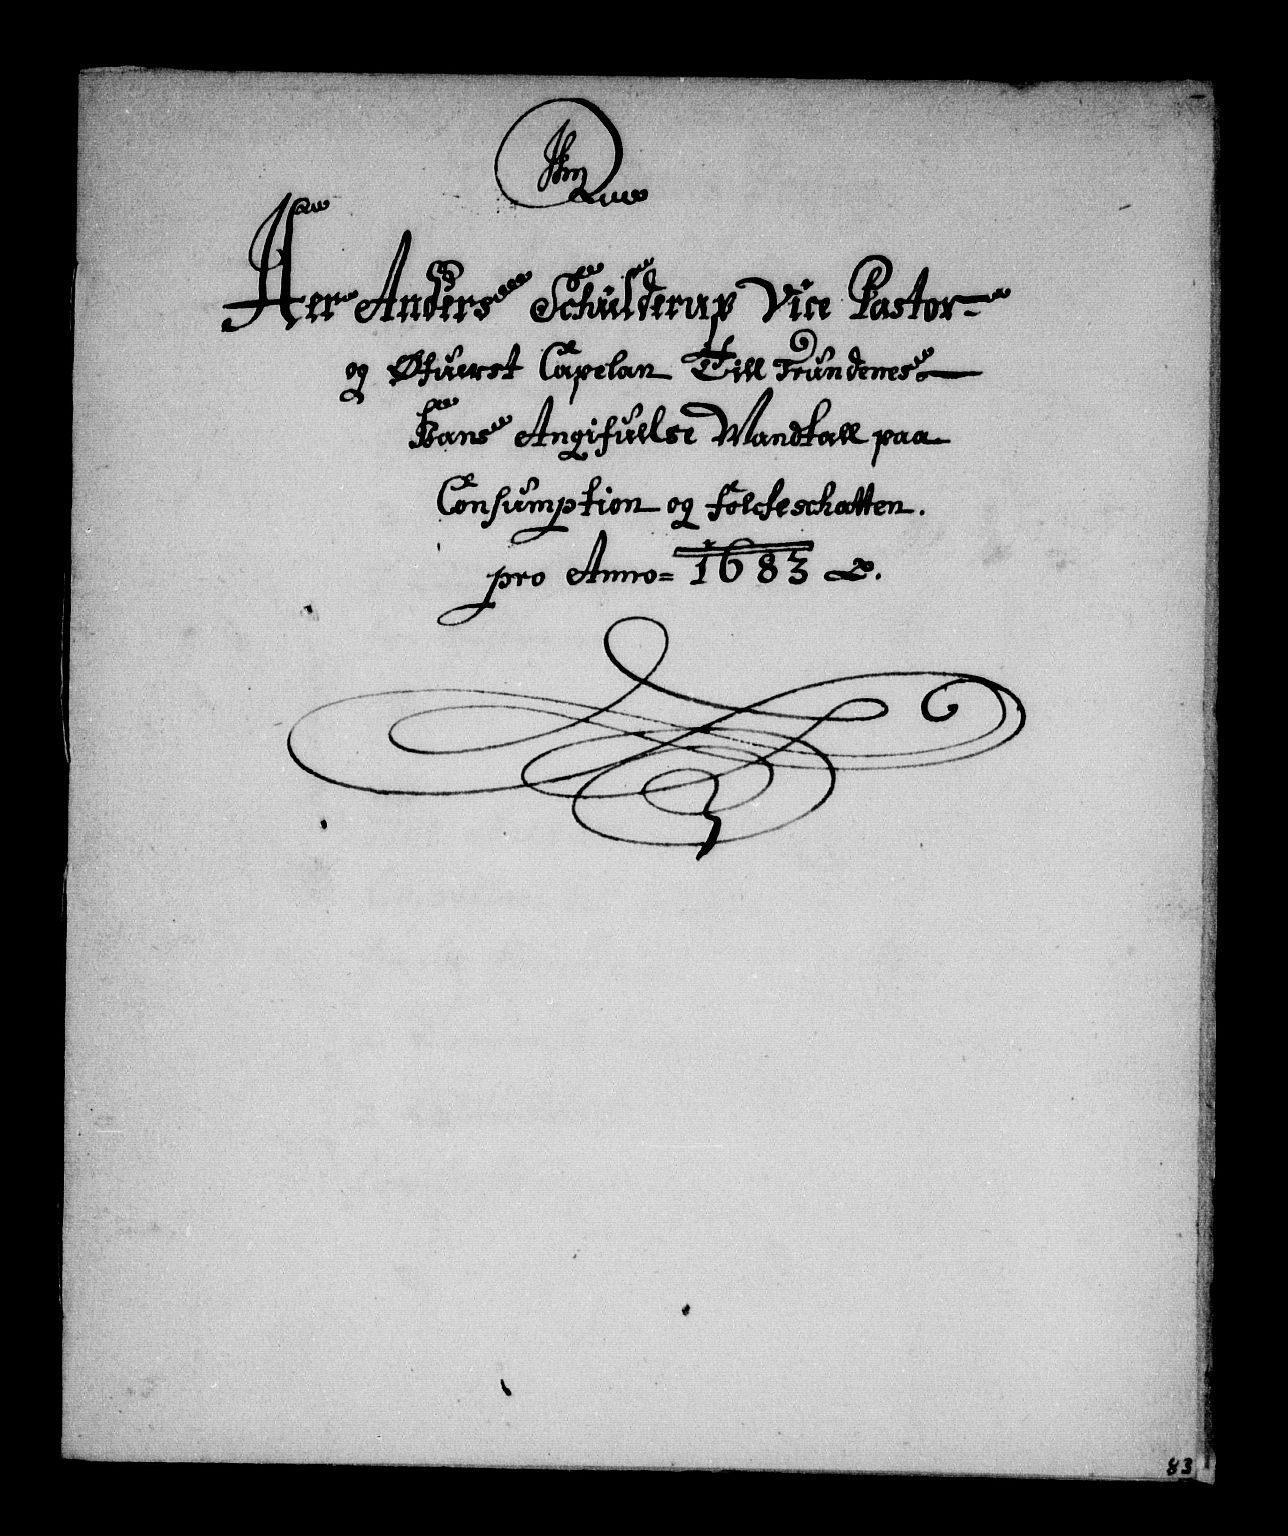 Her Anders Schielderup Vice Pastor
og Øfuerst Capelan Till Trundenes
Hans Angifuelse Mandtall paa
Consumption og folcheschatten.
pro Anno= 1683
83